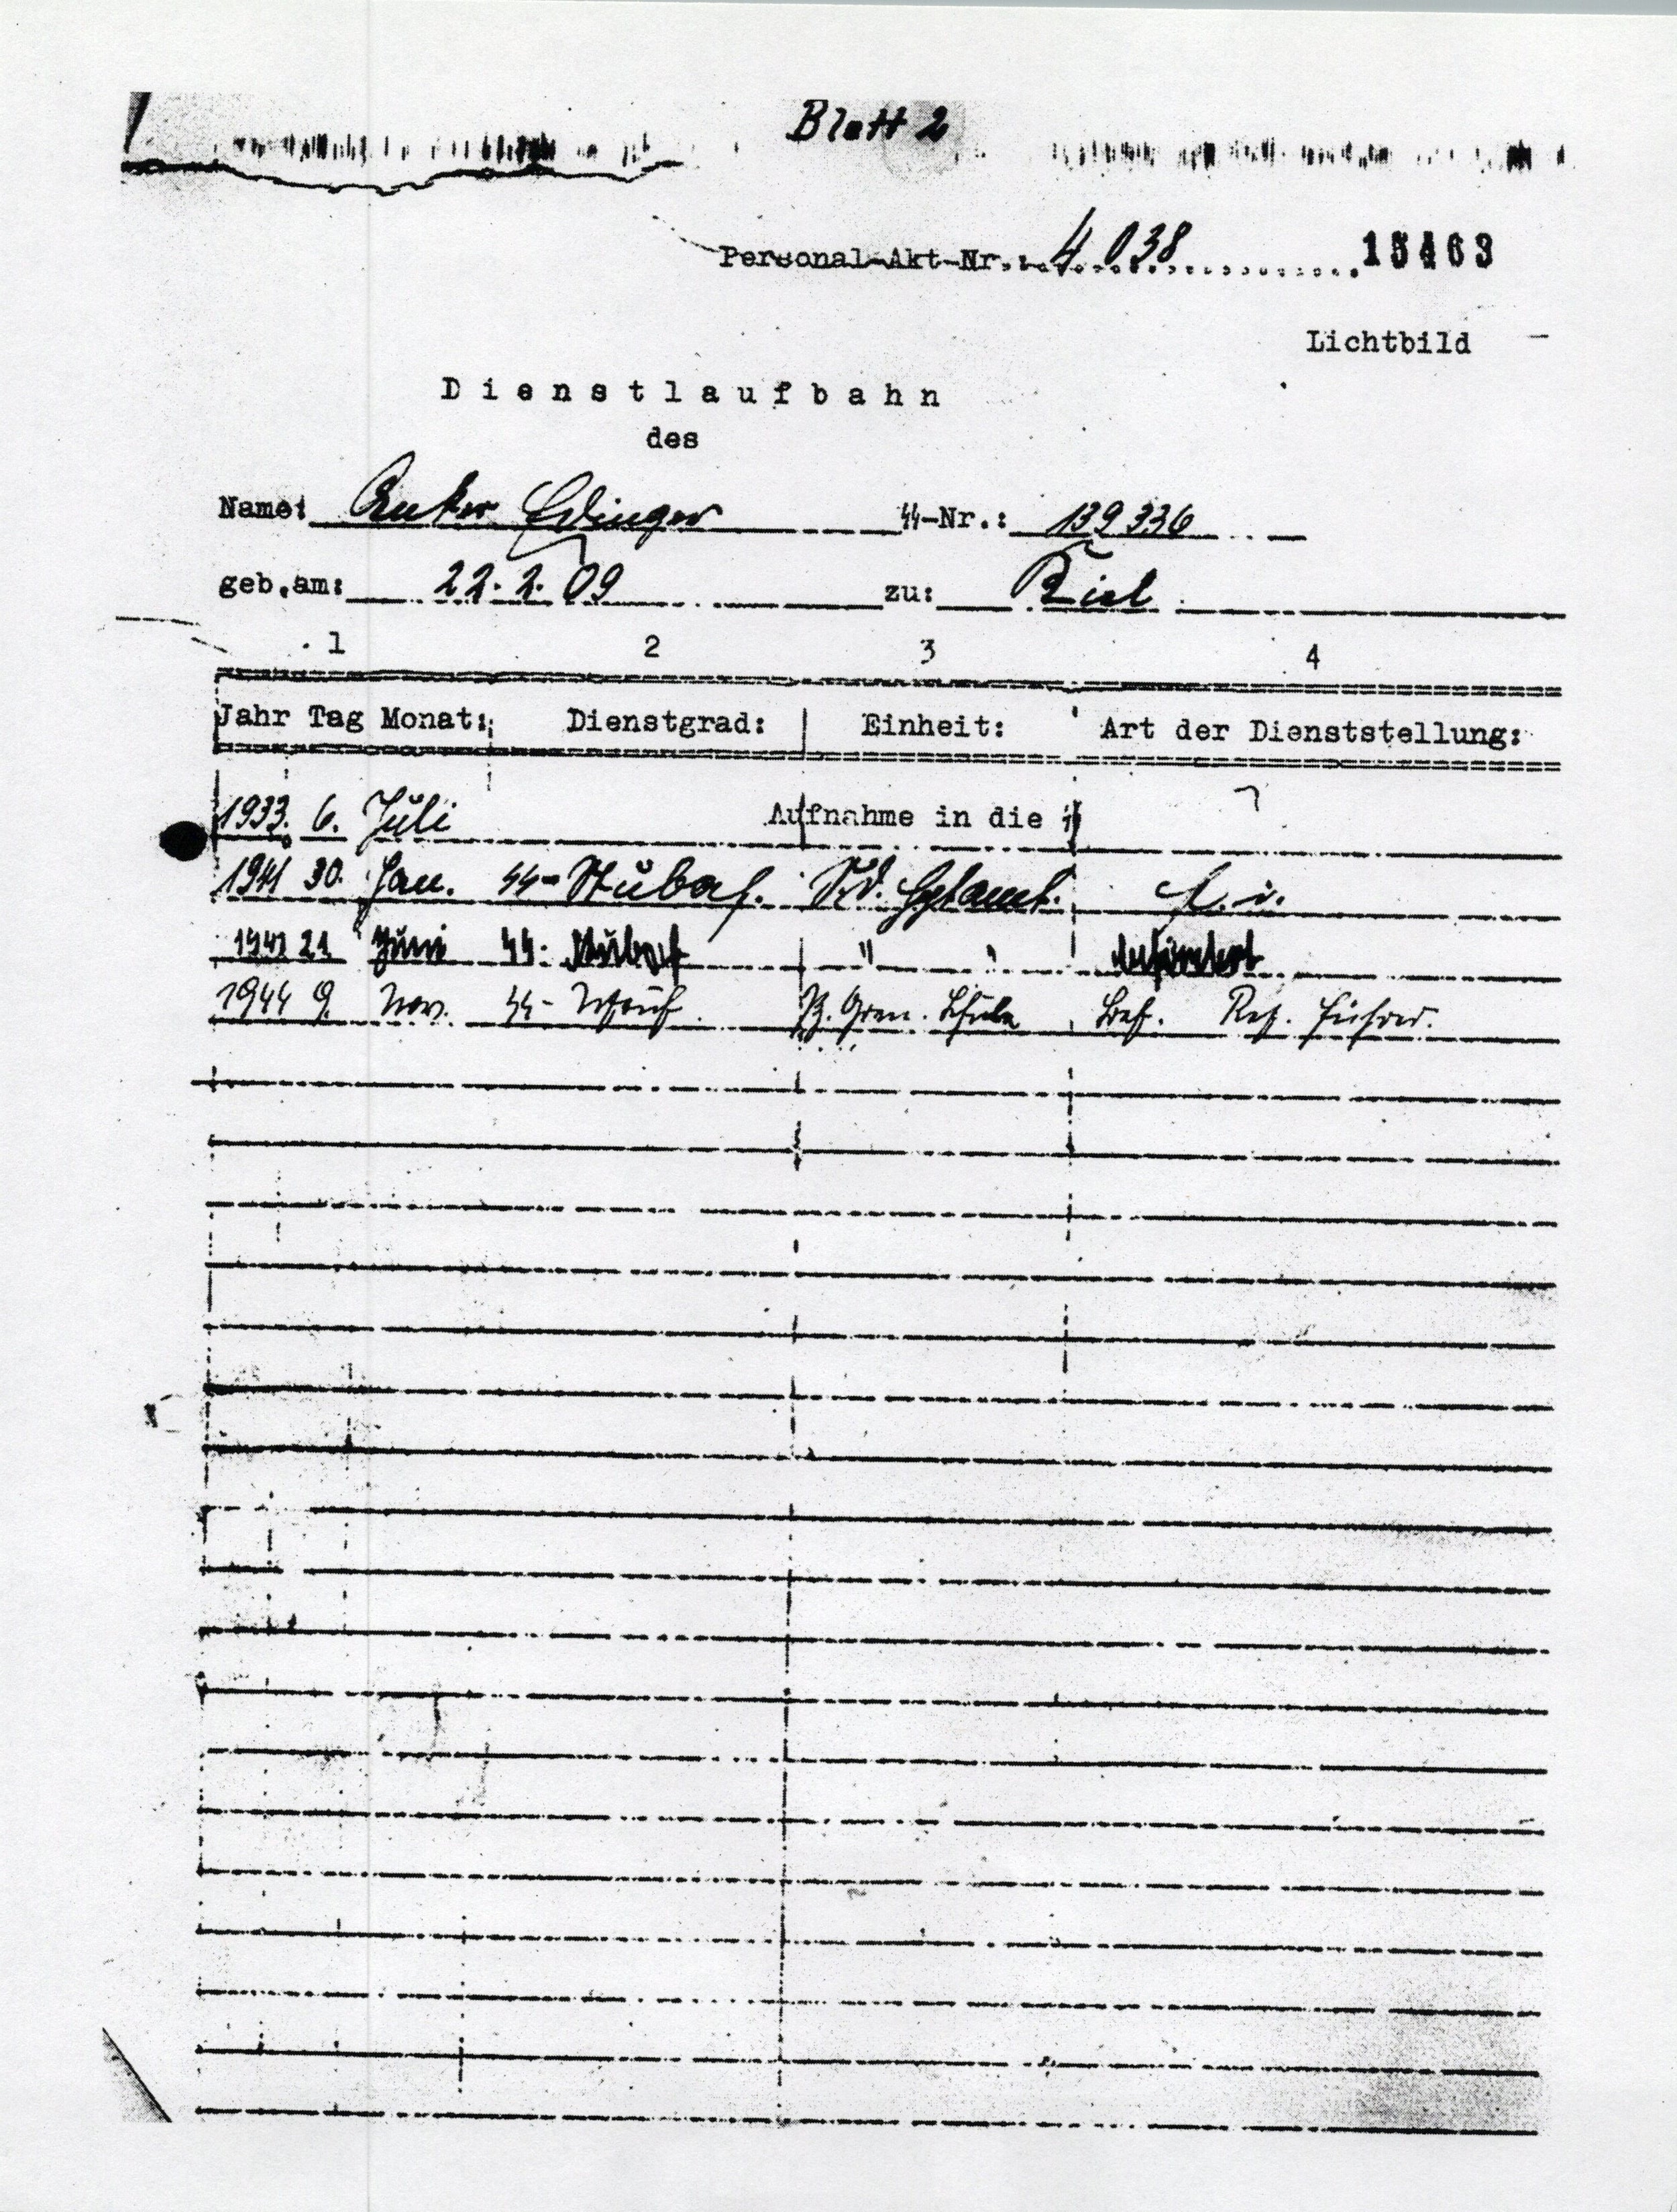 Blatt 2
Personal-Akt-Nr.: 4 038 15463
Lichtbild
Dienstlaufbahn
des
Name: Ancker Edinger ᛋᛋ-Nr.: 139 336
geb.am: 22.2.09 zu: Kiel
1 2 3 4
Jahr Tag Monat: Dienstgrad: Einheit: Art der Dienststellung:
1933. 6. Juli Aufnahme in die ᛋᛋ
1941 30. Jan. ᛋᛋ-Stubaf.
21. Juni ᛋᛋ- Stubaf " " befördert
1944 9. Nov. ᛋᛋ- Schule Ref. Führer.